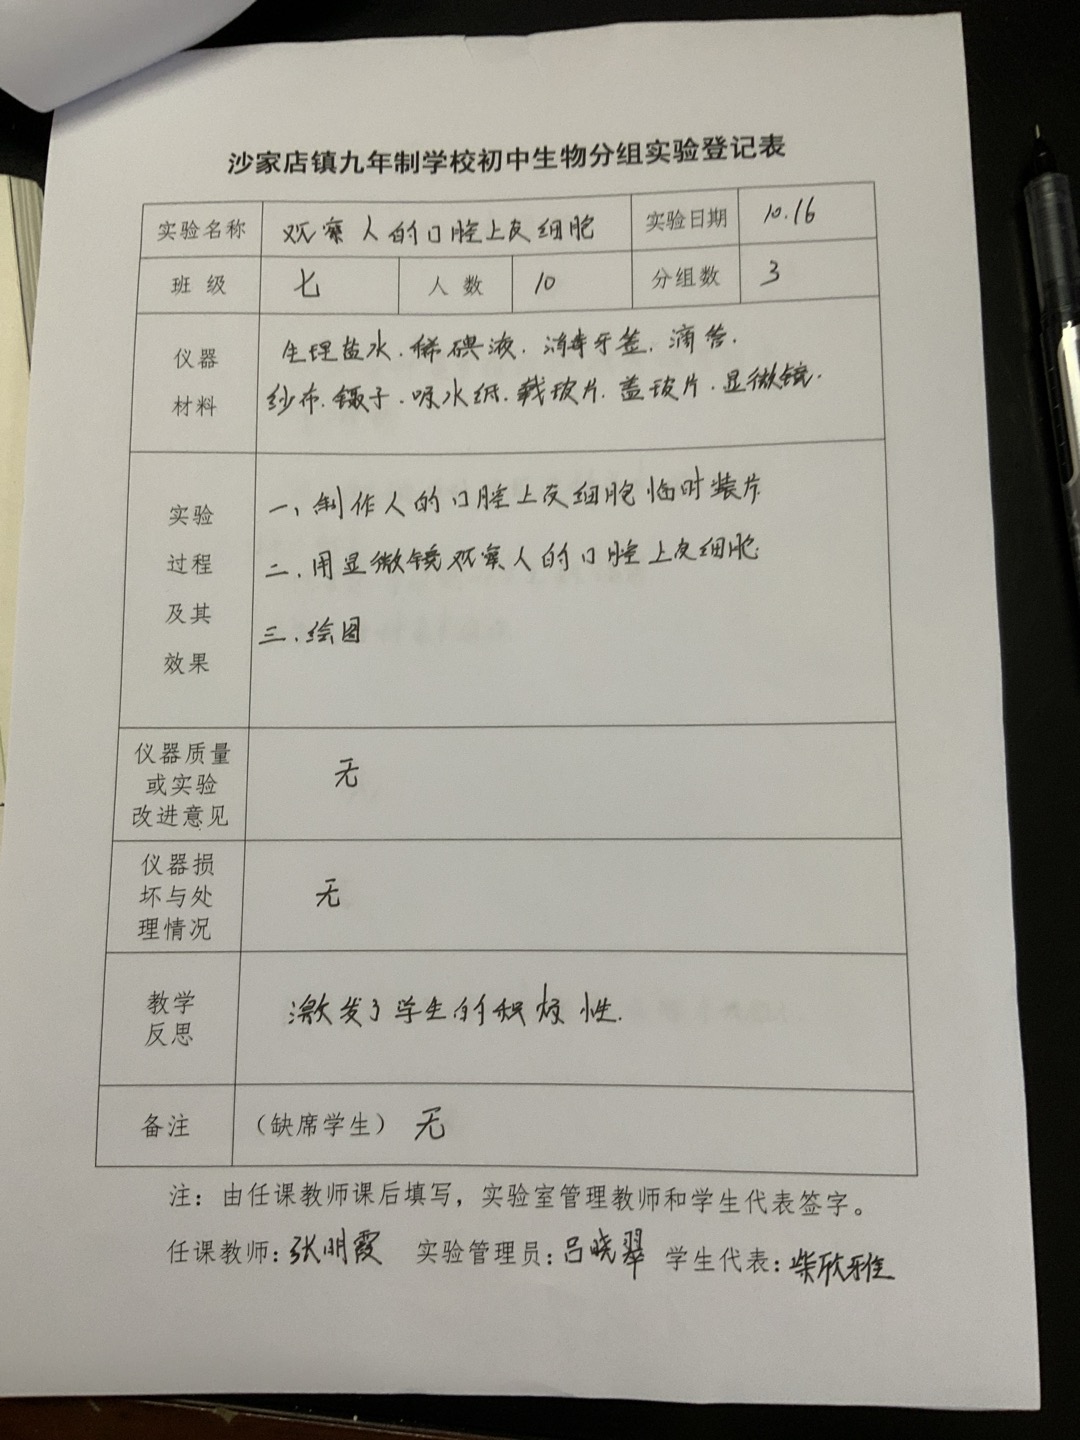 沙家店镇九年制学校初中生物分组实验登记表
实验名称 观察人的口腔上皮细胞 实验日期 10.16
班 级 七 人 数 10 分组数 3
仪器
材料
生理盐水.稀碘液.消毒牙签.滴管.
纱布.镊子.吸水纸.载玻片.盖玻片.显微镜.
实验
过程
及其
效果
一、制作人的口腔上皮细胞临时装片
二.用显微镜观察人的口腔上皮细胞
三.绘图
仪器质量
或实验
改进意见
无
仪器损
坏与处
理情况
无
教学
反思
激发了学生的积极性.
备注 （缺席学生） 无
注：由任课教师课后填写，实验室管理教师和学生代表签字。
任课教师：张明霞 实验管理员：吕晓翠 学生代表：柴欣雅